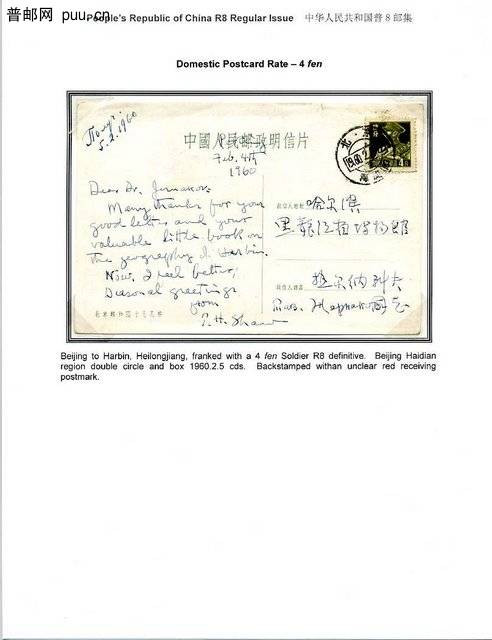 普邮网 puu.cn
People's Republic of China R8 Regular Issue 中华人民共和国普8邮集
Domestic Postcard Rate – 4 fen
5.2.1960
中國人民郵政明信片
Feb. 4th
1960
Dear Dr.
Many thanks for your
good letter and your
valuable little book on
the geography of Harbin.
Now, I feel better,
Seasonal greetings
from
T. H. Shaw
收信人地址 哈尔滨
黑龍江省博物館
收信人姓名
Beijing to Harbin, Heilongjiang, franked with a 4 fen Soldier R8 definitive. Beijing Haidian
region double circle and box 1960.2.5 cds. Backstamped withan unclear red receiving
postmark.